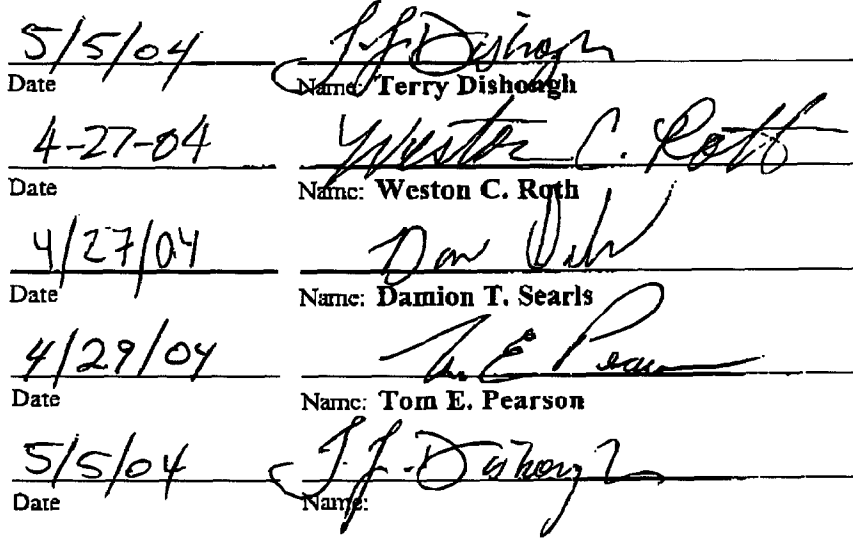 5/5/04 T.J. Dishongh
Date Name: Terry Dishongh
4-27-04 Weston C. Roth
Date Name: Weston C. Roth
4/27/04
Date Name: Damion T. Searls
4/29/04 E Pearson
Date Name: Tom E. Pearson
5/5/04 T.J. Dishongh
Date Name: